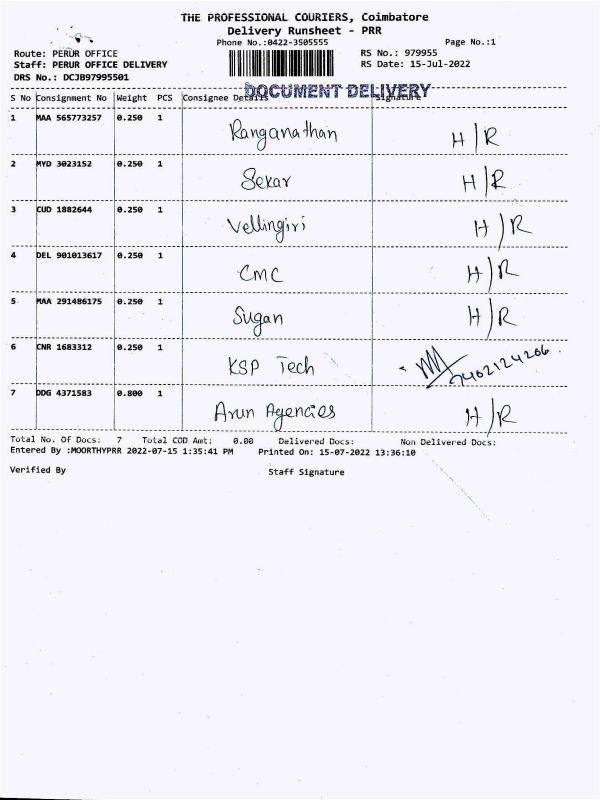 THE PROFESSIONAL COURIERS, Coimbatore
Delivery Runsheet - PRR
Phone No.:0422-3505555 Page No.:1
Route: PERUR OFFICE RS No.: 979955
Staff: PERUR OFFICE DELIVERY RS Date: 15-Jul-2022
DRS No.: DCJB97995501
DOCUMENT DELIVERY
S No Consignment No Weight PCS Consignee Details Signature
1 MAA 565773257 0.250 1 Ranganathan H/R
2 MYD 3023152 0.250 1 Sekar H/R
3 CUD 1882644 0.250 1 Vellingiri H/R
4 DEL 901013617 0.250 1 CMC H/R
5 MAA 291486175 0.250 1 Sugan H/R
6 CNR 1683312 0.250 1 KSP Tech
7 DDG 4371583 0.800 1 Arun Agencies H/R
Total No. Of Docs: 7 Total COD Amt: 0.00 Delivered Docs: Non Delivered Docs:
Entered By :MOORTHYPRR 2022-07-15 1:35:41 PM Printed On: 15-07-2022 13:36:10
Verified By Staff Signature